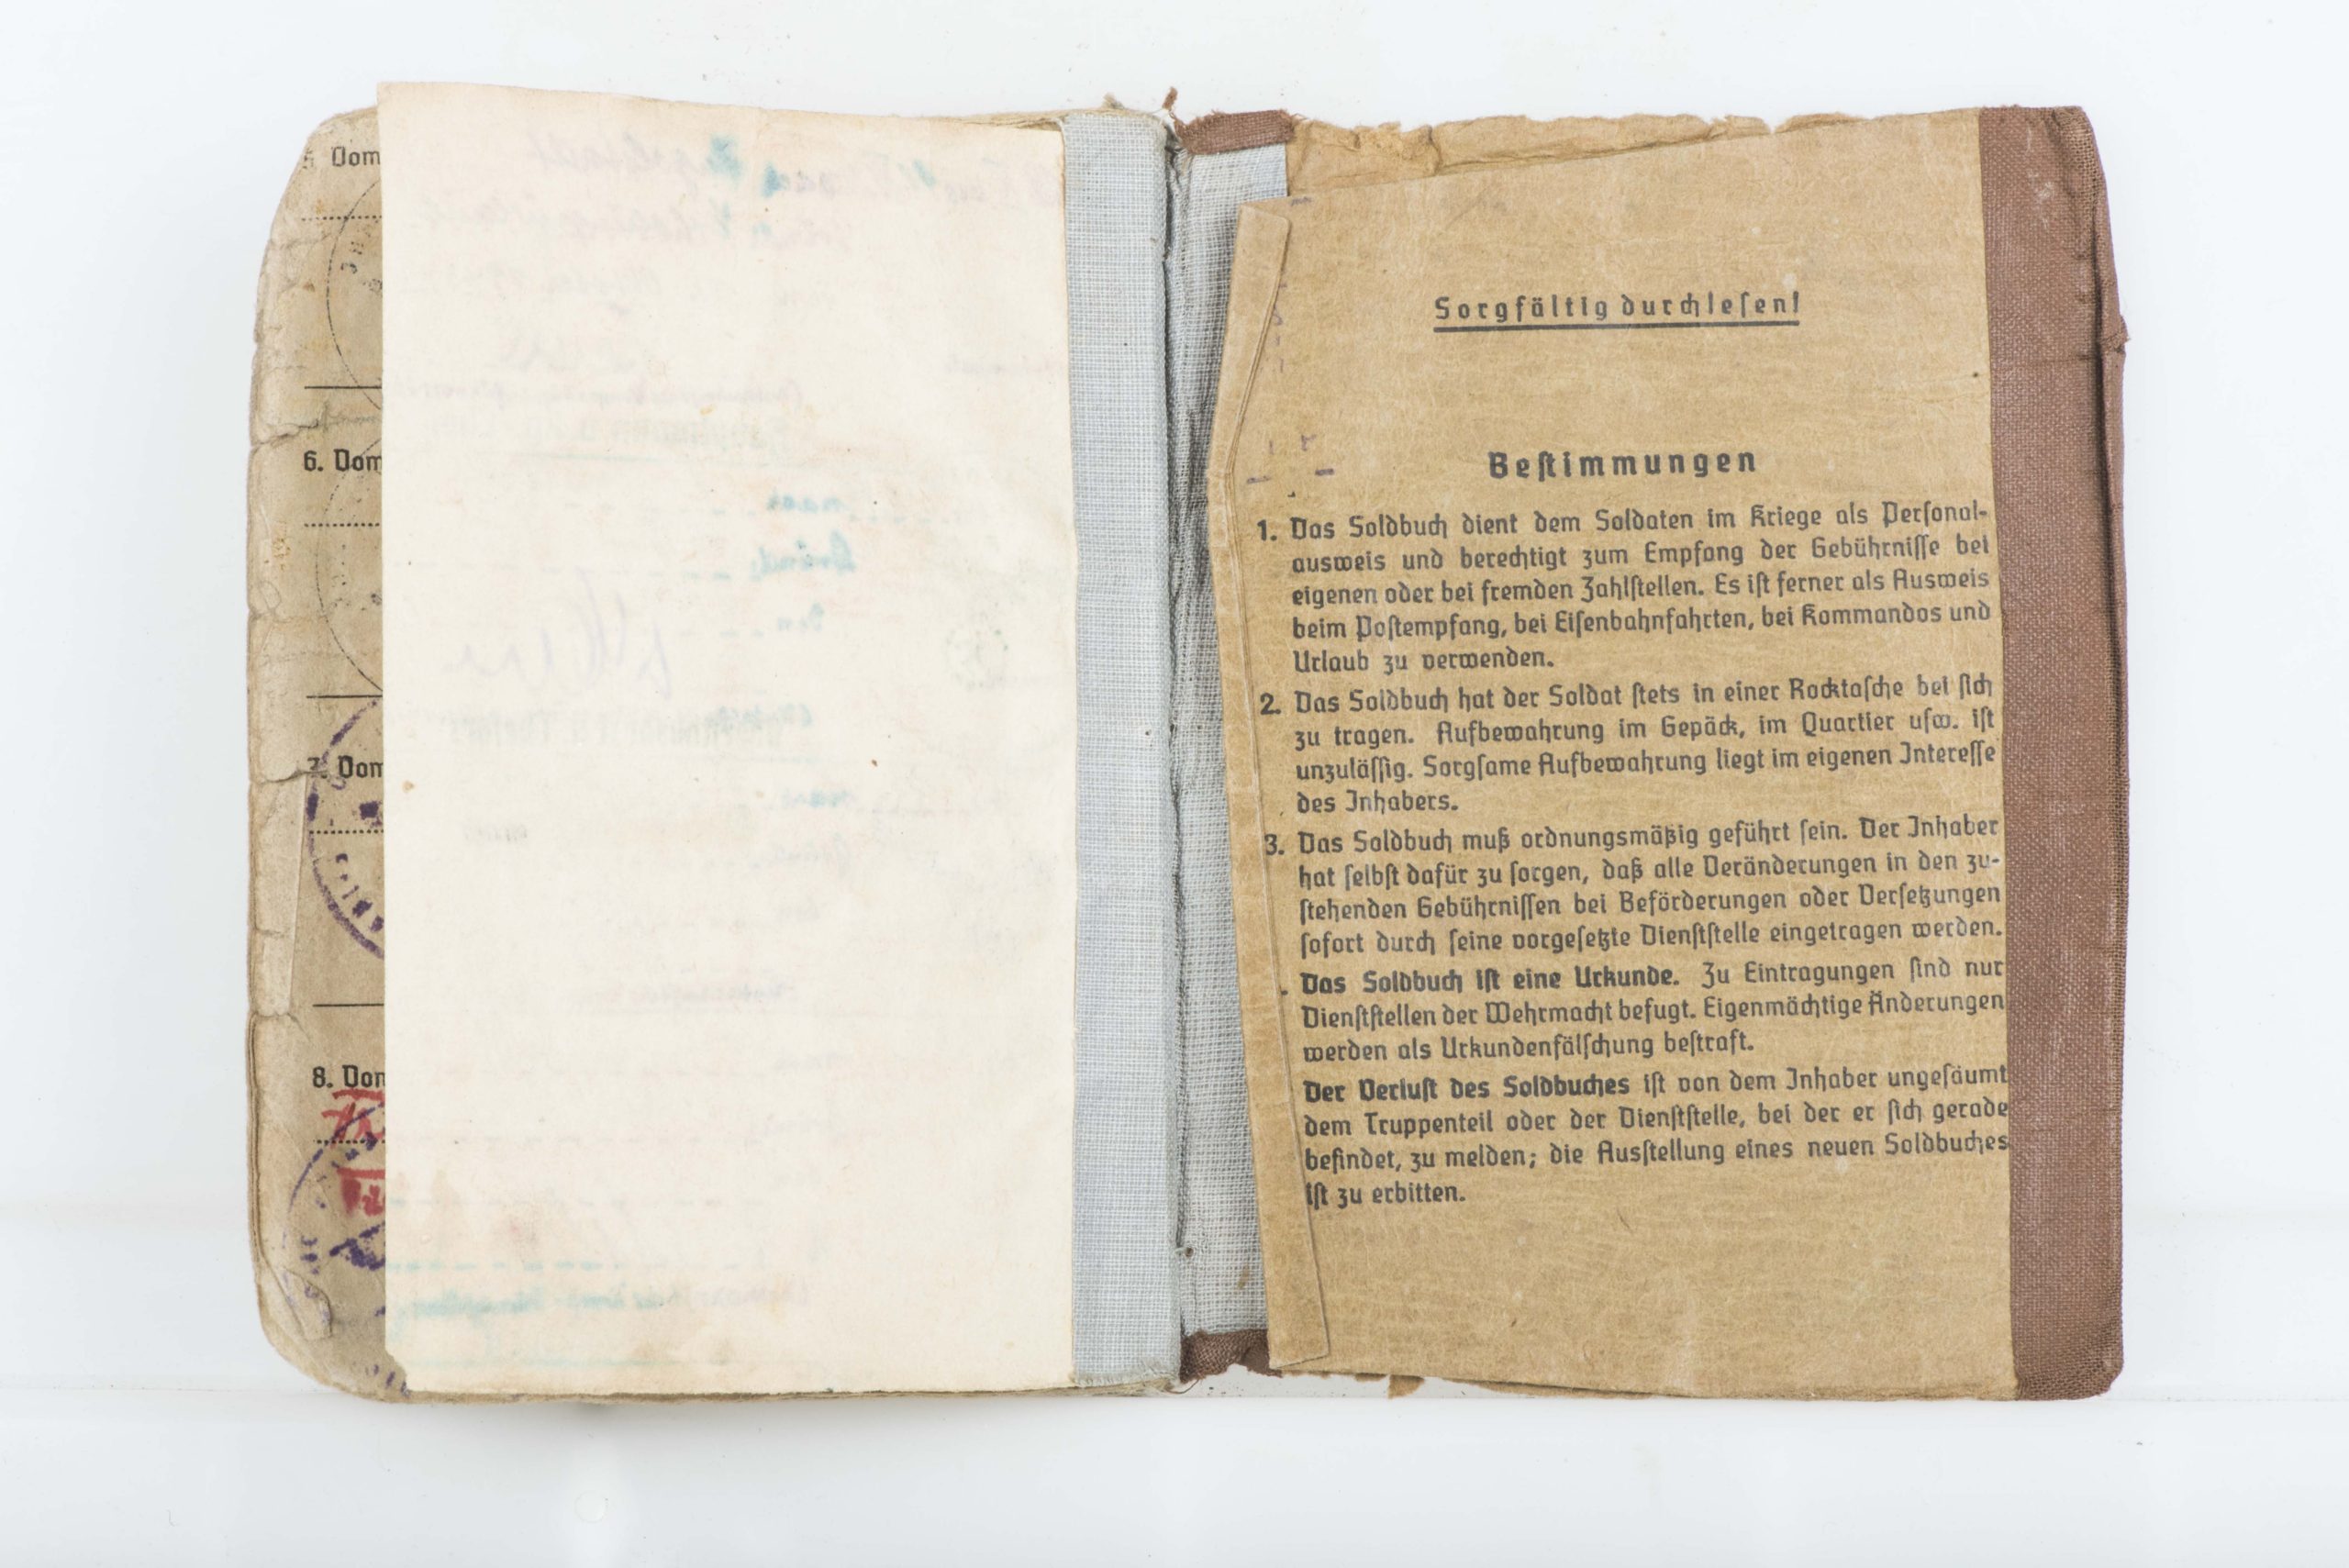 5. Vom
6. Vom
7. Vom
8. Vom
Sorgfältig durchlesen!
Bestimmungen
1. Das Soldbuch dient dem Soldaten im Kriege als Personal-
ausweis und berechtigt zum Empfang der Gebührnisse bei
eigenen oder bei fremden Zahlstellen. Es ist ferner als Ausweis
beim Postempfang, bei Eisenbahnfahrten, bei Kommandos und
Urlaub zu verwenden.
2. Das Soldbuch hat der Soldat stets in einer Rocktasche bei sich
zu tragen. Aufbewahrung im Gepäck, im Quartier usw. ist
unzulässig. Sorgsame Aufbewahrung liegt im eigenen Interesse
des Inhabers.
3. Das Soldbuch muß ordnungsmäßig geführt sein. Der Inhaber
hat selbst dafür zu sorgen, daß alle Veränderungen in den zu-
stehenden Gebührnissen bei Beförderungen oder Versetzungen
sofort durch seine vorgesetzte Dienststelle eingetragen werden.
Das Soldbuch ist eine Urkunde. Zu Eintragungen sind nur
Dienststellen der Wehrmacht befugt. Eigenmächtige Änderungen
werden als Urkundenfälschung bestraft.
Der Verlust des Soldbuches ist von dem Inhaber ungesäumt
dem Truppenteil oder der Dienststelle, bei der er sich gerade
befindet, zu melden; die Ausstellung eines neuen Soldbuches
ist zu erbitten.